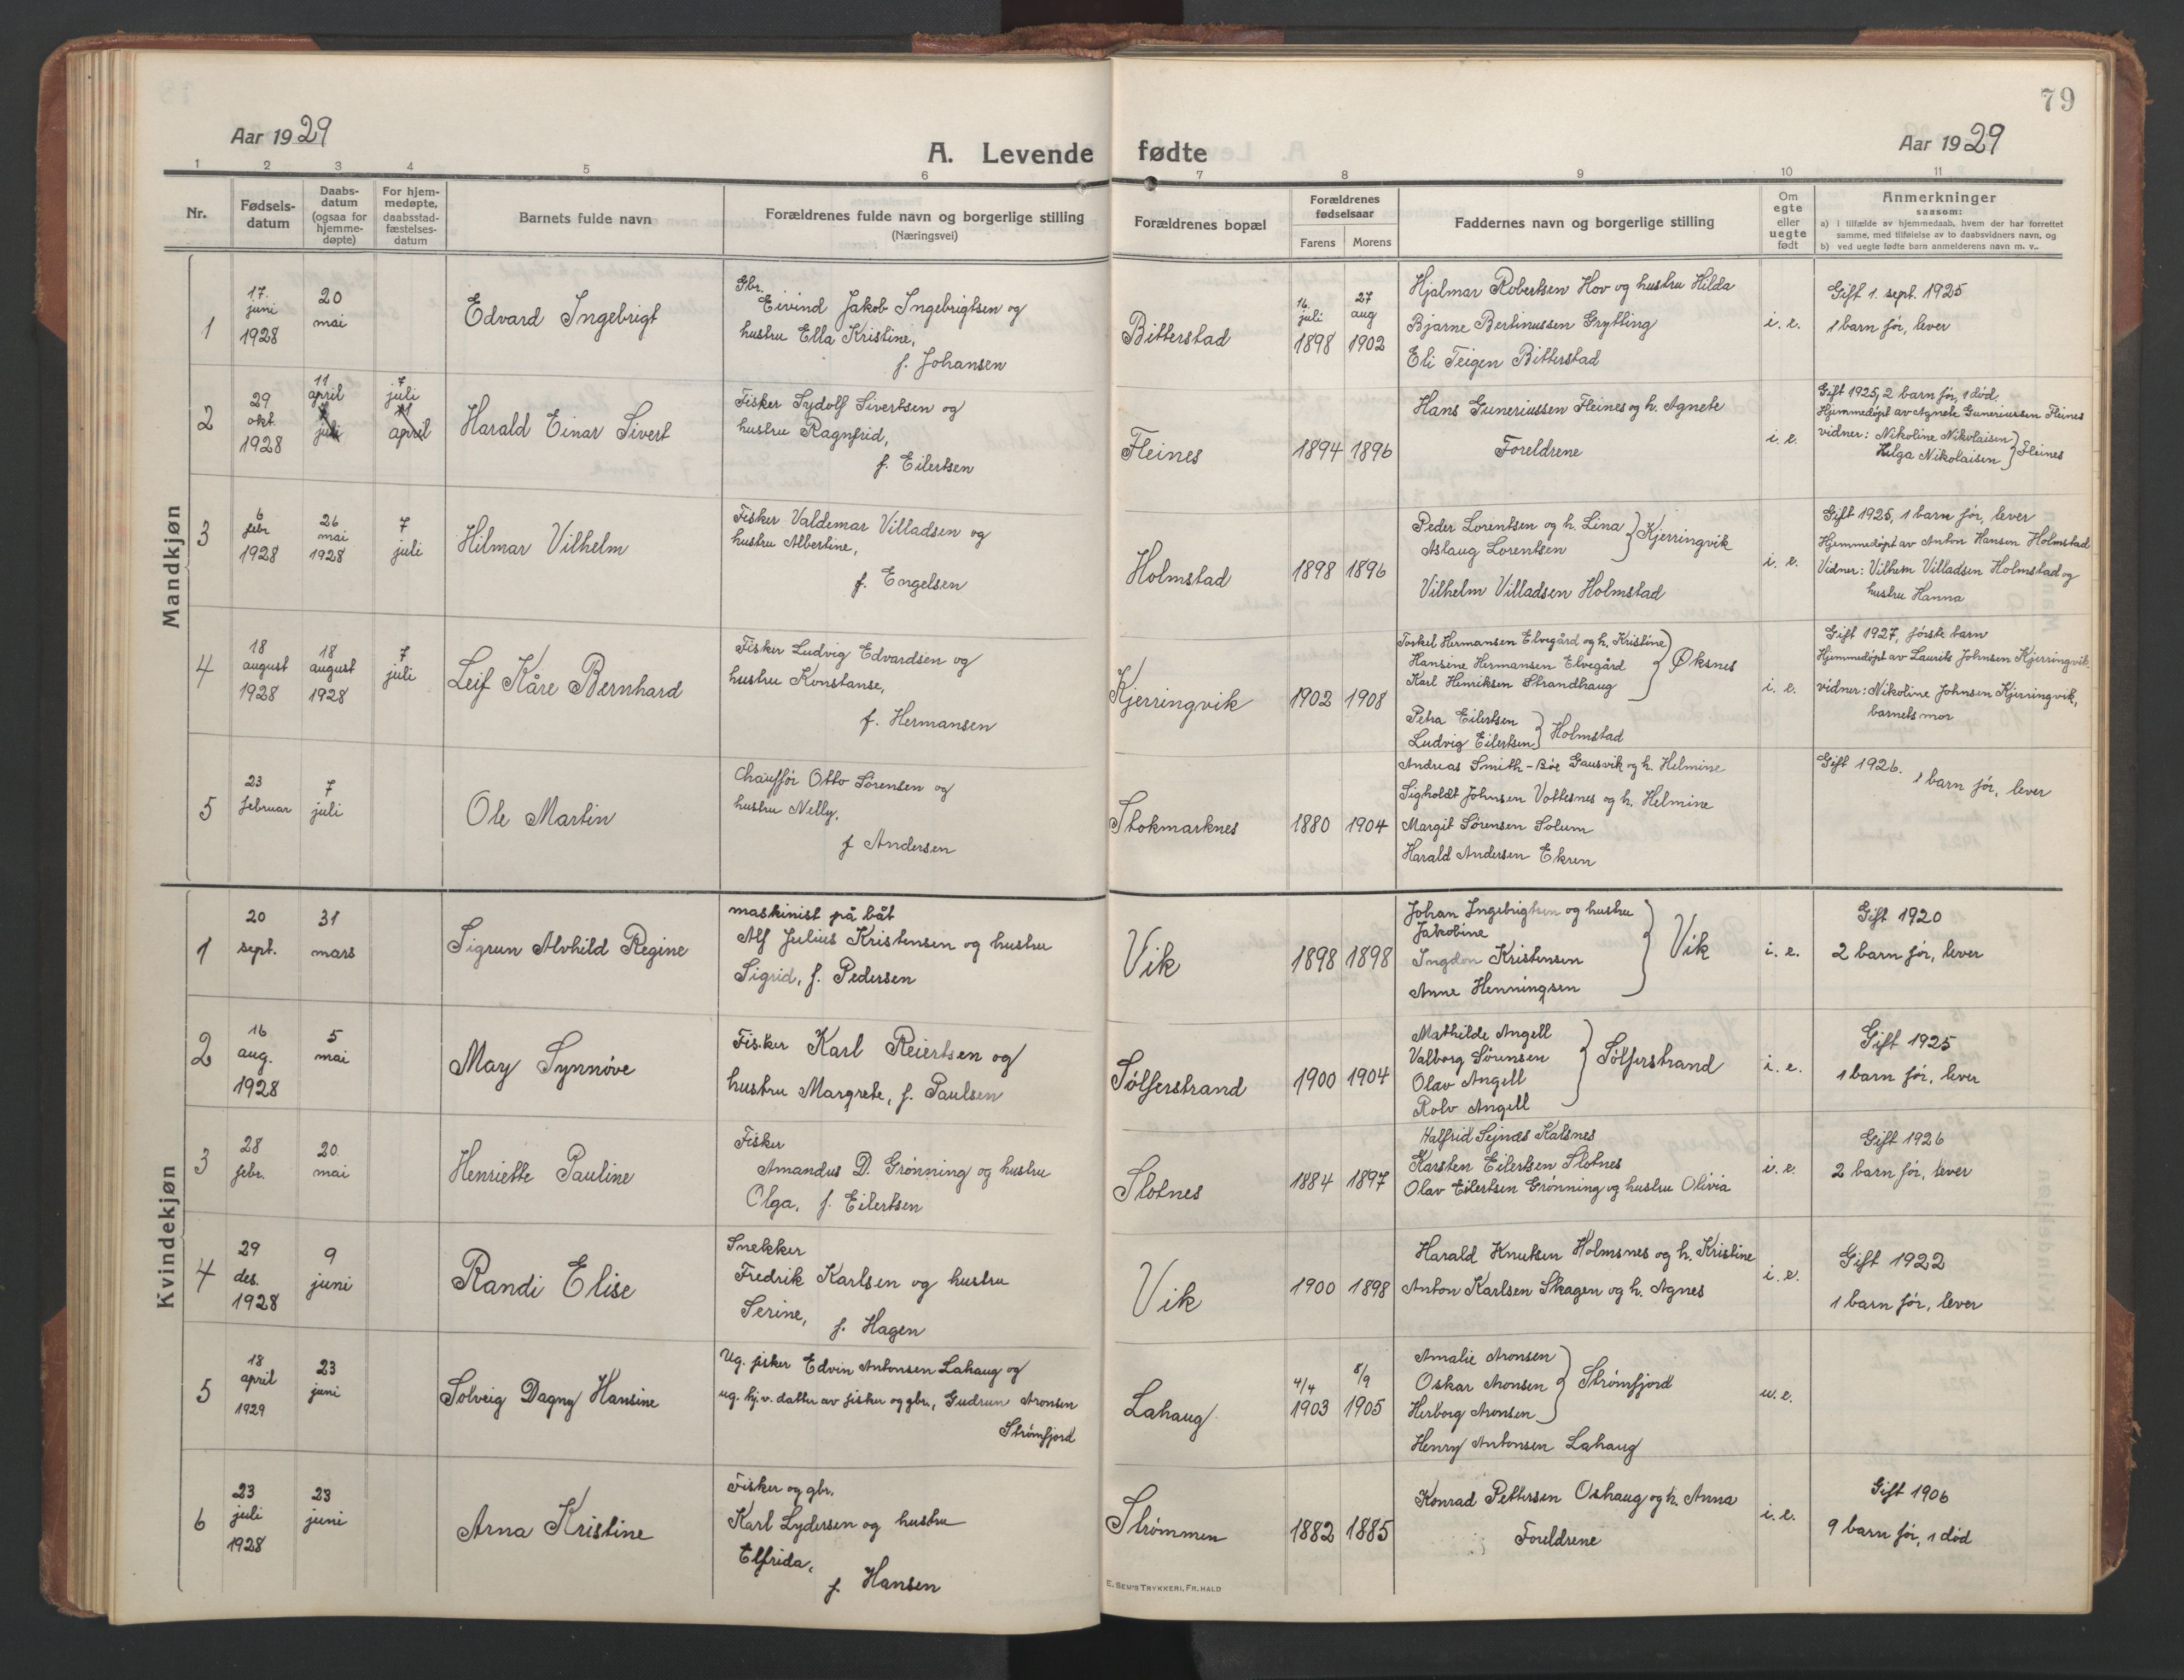 79
Aar 1929
A. Levende fødte
Aar 1929
1 2 3 4 5 6 7 8 9 10 11
Nr.
Fødsels-
datum
Daabs-
datum
(ogsaa for
hjemme-
døpte)
For hjem-
medøpte,
daabsstad-
fæstelses-
datum
Barnets fulde navn
Forældrenes fulde navn og borgerlige stilling
(Næringsvei)
Forældrenes bopæl
Forældrenes
fødselsaar
Farens Morens
Faddernes navn og borgerlige stilling
Om
egte
eller
uegte
født
Anmerkninger
saasom:
a) i tilfælde av hjemmedaab, hvem der har forrettet
samme, med tilføielse av to daabsvidners navn, og
b) ved uegte fødte barn anmelderens navn m. v..
Mandkjøn
1
17.
juni
1928
20
mai
Edvard Ingebrigt
Gbr.
Eivind Jakob Ingebrigtsen og
hustru Ella Kristine,
f. Johansen
Bitterstad
16.
juli
1898
27
aug
1902
Hjalmar Robertsen Hov og hustru Hilda
Bjarne Bertinussen Grytting
Eli Teigen Bitterstad
i. e.
Gift 1. sept. 1925
1 barn før, lever
2
29
okt.
1928
11
april
7
juli
7
juli
11
april
Harald Einar Sivert
Fisker Sydolf Sivertsen og
hustru Ragnfrid,
f. Eilertsen
Fleines
1894 1896
Hans Guneriussen Fleines og h. Agnete
Foreldrene
i. e.
Gift 1925, 2 barn før, 1 død.
Hjemmedøpt av Agnete Guneriussen Fleines
vidner: Nikoline Nikolaisen
Helga Nikolaisen } Fleines
3
6
febr
1928
26
mai
1928
7
juli
Hilmar Vilhelm
Fisker Valdemar Villadsen og
hustru Albertine,
f. Engelsen
Holmstad
1898 1896
Peder Lorentsen og h. Lina
Aslaug Lorentsen } Kjerringvik
Vilhelm Villadsen Holmstad
i. e.
Gift 1925, 1 barn før, lever
Hjemmedøpt av Anton Hansen Holmstad
Vidner: Vilhem Villadsen Holmstad og
hustru Hanna
4
18
august
1928
18
august
1928
7
juli
Leif Kåre Bernhard
Fisker Ludvig Edvardsen og
hustru Konstanse,
f. Hermansen
Kjerringvik
1902 1908
Torkel Hermansen Elvegård og h. Kristine
Hansine Hermansen Elvegård
Karl Henriksen Strandhaug } Øksnes
Petra Eilertsen
Ludvig Eilertsen } Holmstad
i. e.
Gift 1927, første barn
Hjemmedøpt av Laurits Johnsen Kjerringvik.
vidner: Nikoline Johnsen Kjerringvik,
barnets mor
5
23
februar
7
juli
Ole Martin
Chauffør Otto Sørensen og
hustru Nelly,
f Andersen
Stokmarknes
1880 1904
Andreas Smith - Bøe Gausvik og h. Helmine
Sigholdt Johnsen Vottesnes og h. Helmine
Margit Sørensen Solum
Harald Andersen Ekren
Gift 1926. 1 barn før, lever
Kvindekjøn
1
20
sept.
31
mars
Sigrun Alvhild Regine
maskinist på båt
Alf Julius Kristensen og hustru
Sigrid, f. Pedersen
Vik
1898 1898
Johan Ingebrigtsen og hustru
Jakobine
Kristensen
Anne Henningsen } Vik
i. e.
Gift 1920
2 barn før, lever
2
16
aug.
1928
5
mai
May Synnøve
Fisker Karl Reiertsen og
hustru Margrete, f. Paulsen
Sølferstrand
1900 1904
Mathilde Angell
Valborg Sørensen
Olav Angell
Rolv Angell } Sølferstrand
i. e.
Gift 1925
1 barn før, lever
3
28
febr.
20.
mai
Henriette Pauline
Fisker
Amandus D. Grønning og hustru
Olga, f. Eilertsen
Slotnes
1884 1897
Halfrid Sejnæs Kalsnes
Karsten Eilertsen Slotnes
Olav Eilertsen Grønning og hustru Olivia
i. e.
Gift 1926
2 barn før, lever
4
29
des.
1928
9
juni
Randi Elise
Snekker
Fredrik Karlsen og hustru
Serine,
f. Hagen
Vik
1900 1898
Harald Knutsen Holmsnes og h. Kristine
Anton Karlsen Skagen og h. Agnes
i. e.
Gift 1922
1 barn før, lever
5
18
april
1929
23
juni
Solveig Dagny Hansine
Ug. fisker Edvin Antonsen Lahaug og
ug. hj.v. datter av fisker og gbr., Gudrun Aronsen
Strømfjord
Lahaug
4/4
1903
8/9
1905
Amalie Aronsen
Oskar Aronsen
Herborg Aronsen } Strømfjord
Henry Antonsen Lahaug
u. e.
6
23
juli
1928
23
juni
Arna Kristine
Fisker og gbr.
Karl Lydersen og hustru
Elfrida,
f. Hansen
Strømmen
1882 1885
Konrad Pettersen Oshaug og h. Anna
Foreldrene
i. e.
Gift 1906
9 barn før, 1 død
E. Sem's Trykkeri, Fr.hald